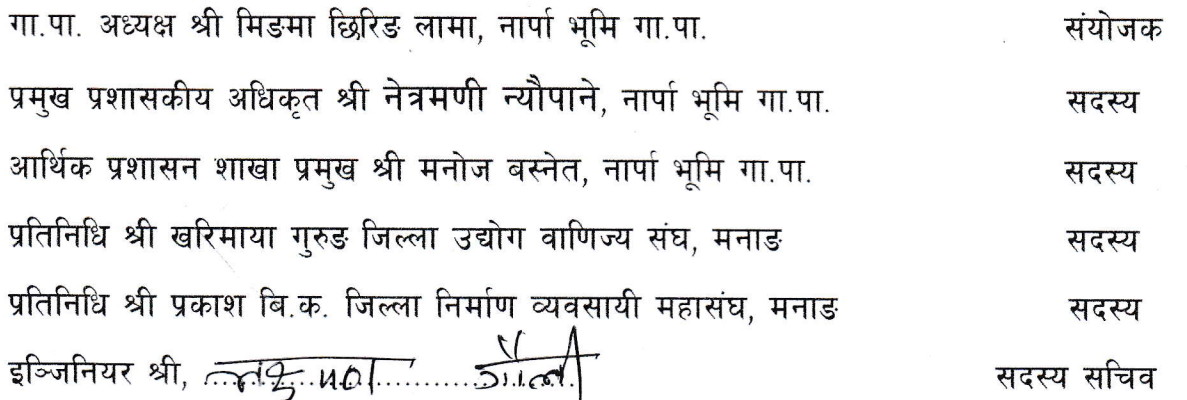 गा.पा. अध्यक्ष श्री मिङमा छिरिङ लामा, नार्पा भूमि गा.पा. संयोजक
प्रमुख प्रशासकीय अधिकृत श्री नेत्रमणी न्यौपाने, नार्पा भूमि गा.पा. सदस्य
आर्थिक प्रशासन शाखा प्रमुख श्री मनोज बस्नेत, नार्पा भूमि गा.पा. सदस्य
प्रतिनिधि श्री खरिमाया गुरुङ जिल्ला उद्योग वाणिज्य संघ, मनाङ सदस्य
प्रतिनिधि श्री प्रकाश बि.क. जिल्ला निर्माण व्यवसायी महासंघ, मनाङ सदस्य
इञ्जिनियर श्री, सदस्य सचिव